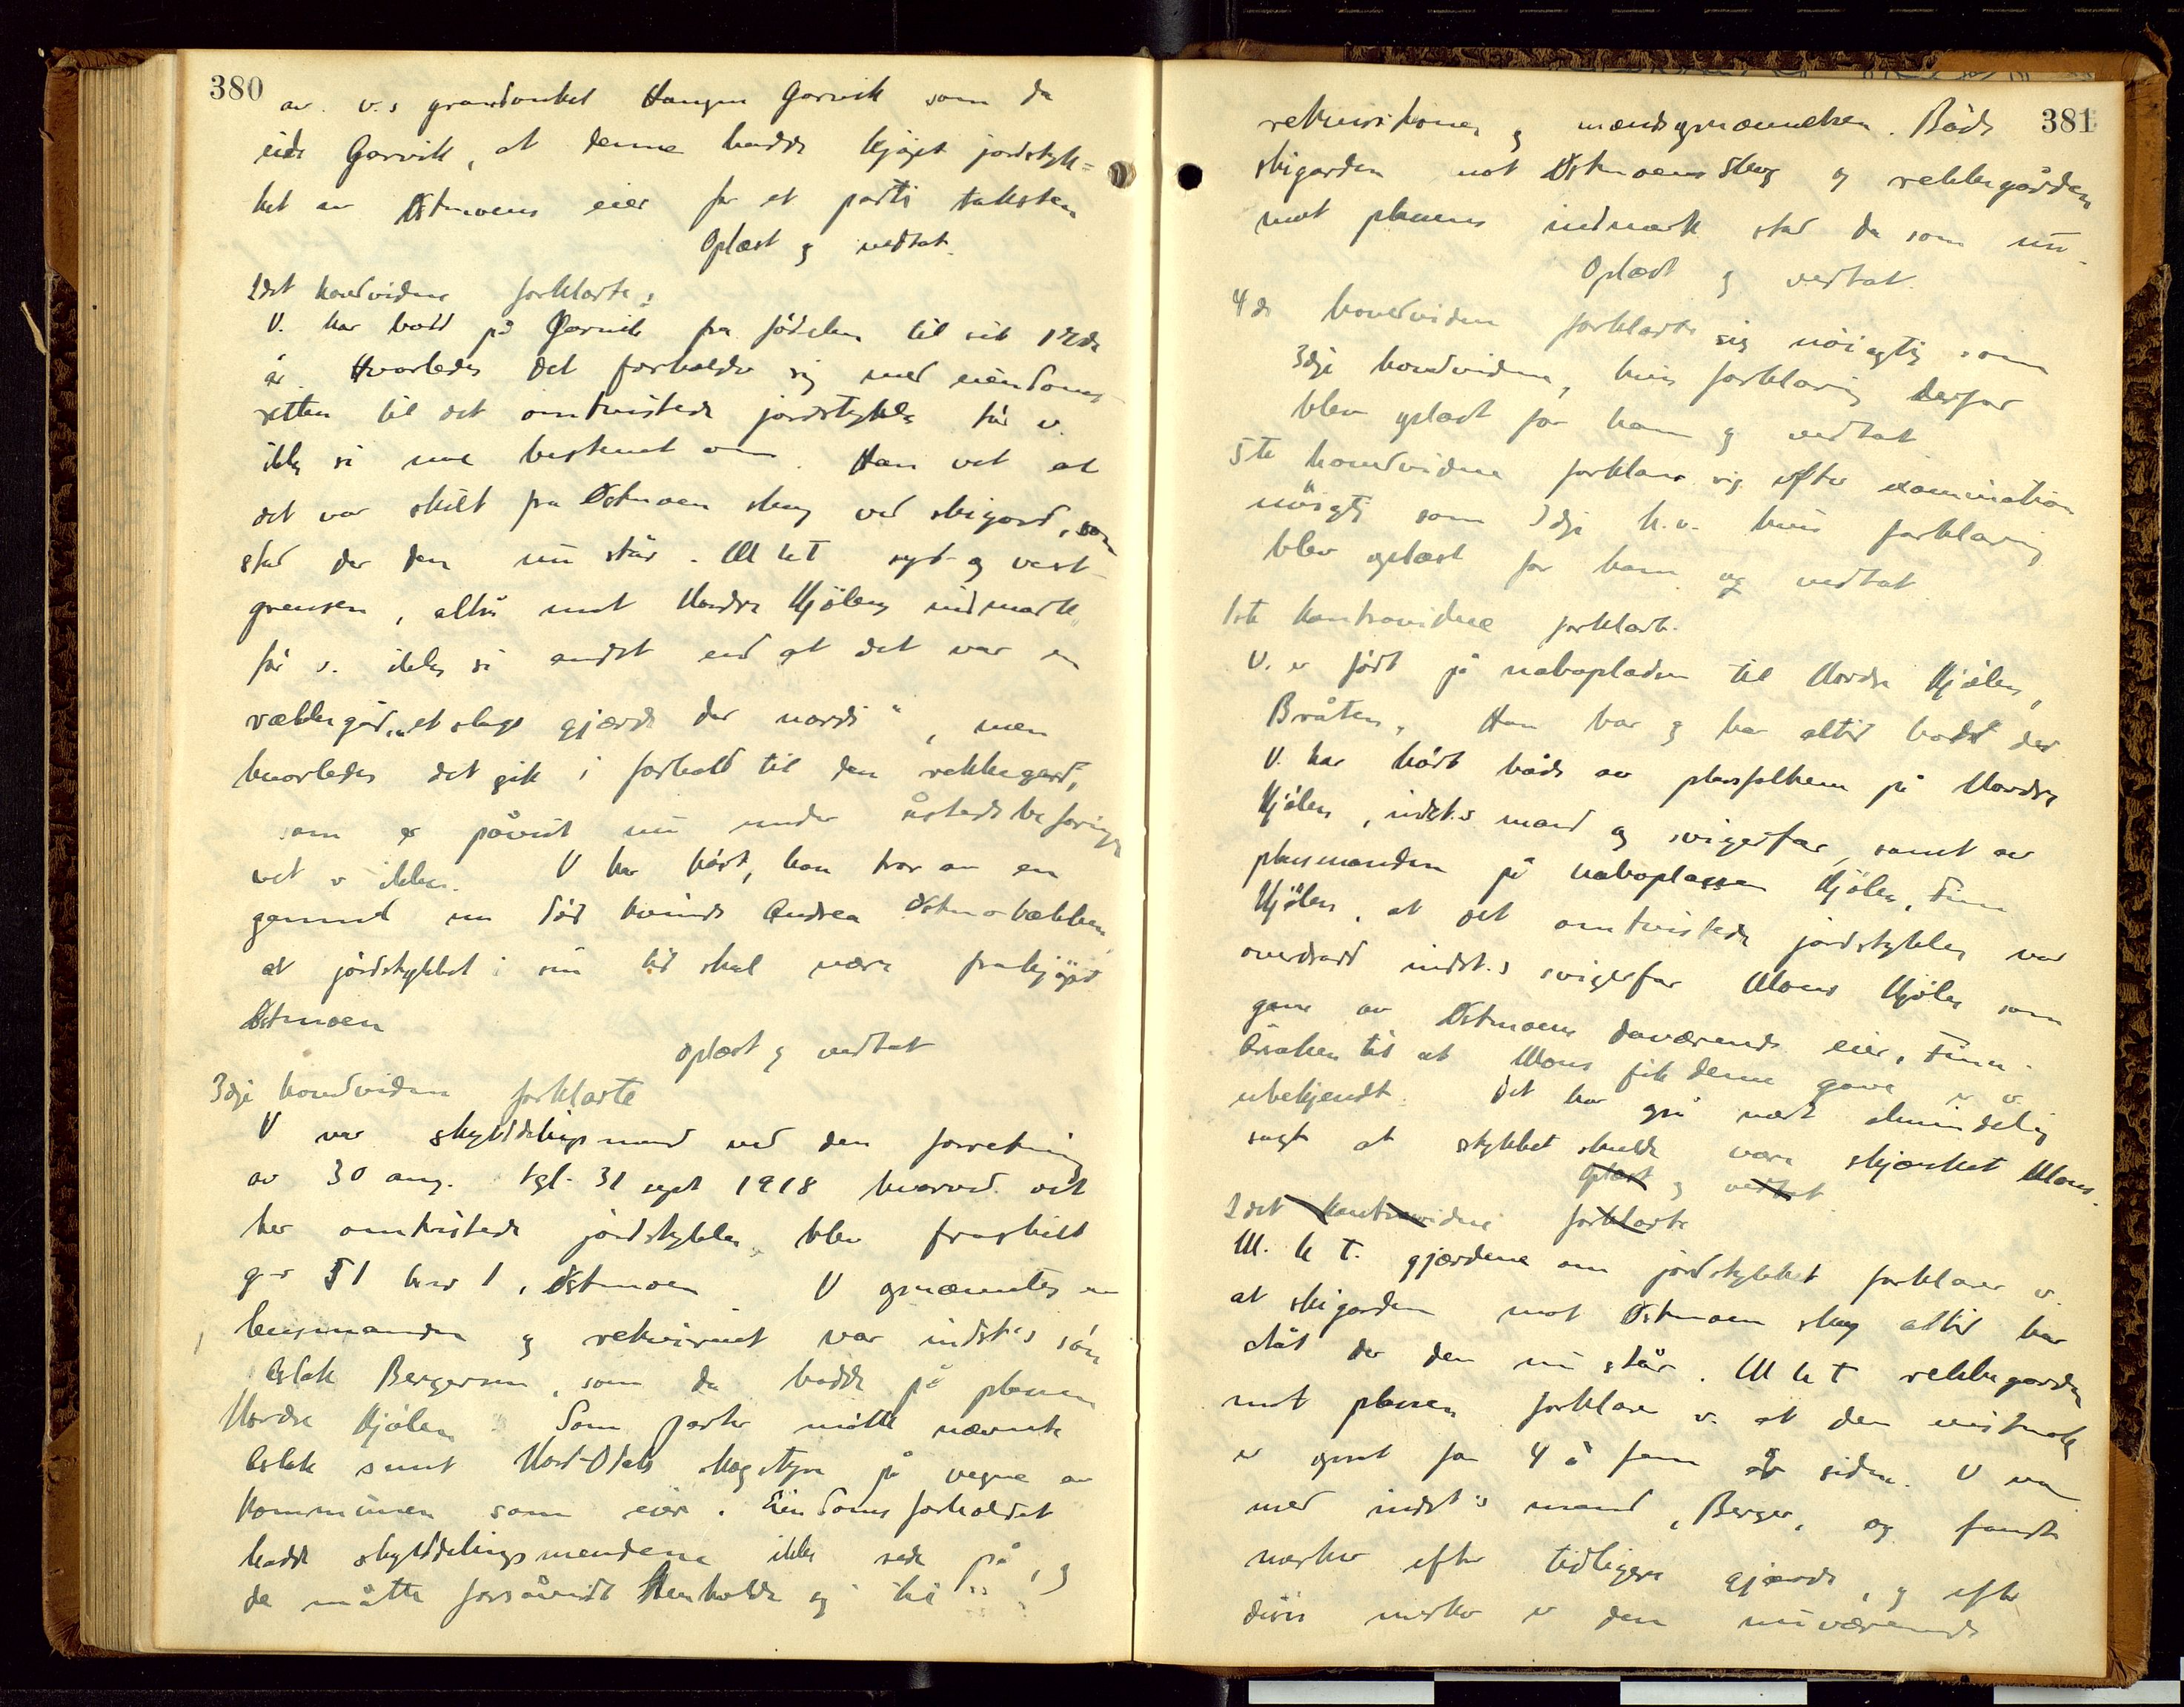 380
av v.s grandonkel Haagen Garvik som da
eide Garvik, at denne hadde kjøpt jordstyk=
ket av Østmoens eier for et parti taksten
Oplæst og vedtat.
2det hovedvidne forklarte:
V. har bodd på Garvik fra fødselen til sit 17de
år. Hvorledes det forholder sig med eiendoms-
retten til det omtvistede jordstykke tør v.
ikke si noe bestemt om. Han vet at
det var skilt fra Østmoen skog ved skigard, som
stod der den nu står. M h t syd- og vest-
grensen, altså mot Nordre Kjølens indmark
tør v. ikke si andet end at det var en
rækkegård, "et slags gjærde der nordi", men
hvorledes det gik i forhold til den rekkegard,
som er påvist nu under åstedsbefaringen
vet v ikke. V har hørt, han tror av en
gammel nu død kvinde Andrea Østmobækken,
at jordstykket i sin tid skal være frakjøpt
Østmoen
Oplæst og vedtat
3dje hovedvidne forklarte
V var skylddelingsmand ved den forretning
av 30 aug. tgl. 31 sept 1918 hvorved det
her omtvistede jordstykke blev fraskilt
g-r 51 b.nr 1, Østmoen V opnævntes av
lensmanden og rekvirent var indst.s søn
Aslak Bergersen, som da bodde på plassen
Nordre Kjølen. Som parter møtte nævnte
Aslak samt Nord-Odals skogstyre på vegne av
kommunen som eier. Eiendomsforholdet
hadde skylddelingsmendene ikke rede på, og
de måtte forsåvidt henholde sig til
381
rekvisitionen og mandsopnævnelsen. Både
skigarden mot Østmoens skog og rekkegården
mot plassens indmark stod da som nu.
Oplæst og vedtat.
4de hovedvidne forklarte sig nøiagtig som
3dje hovedvidne, hvis forklaring derfor
blev oplæst for ham og vedtat
5te hovedvidne forklarer sig efter examination
nøiagtig som 3dje h.v. hvis forklaring
blev oplæst for ham og vedtat
1ste kontravidne forklarte.
V. er født på naboplassen til Nordre Kjølen,
Bråten. Han bor og har altid bodd der
V. har hørt både av plassfolkene på Nordre
Kjølen, indst.s mand og svigerfar, samt av
plassmanden på naboplassen Kjølen, Finn
Kjølen, at det omtvistede jordstykke var
overdradd indst.s svigerfar Mons Kjølen som
gave av Østmoens daværende eier, Finn.
Årsaken til at Mons fik denne gave er v.
ubekjendt. Det har også vært almindelig
sagt at stykket skulde være skjænket Mons.
Oplæst og vedtat
2det kontravidne forklarte
M. h t. gjærdene om jordstykket forklarer v.
at skigarden mot Østmoen skog altid har
stått der den nu står. M h t rekkegarden
mot plassen forklarer v. at den vistnok
er opsat for 4 à fem år siden. V var
med indst's mand, Berger, og fandt
merker efter tidligere gjærde, og efter
disse merker er den nuværende